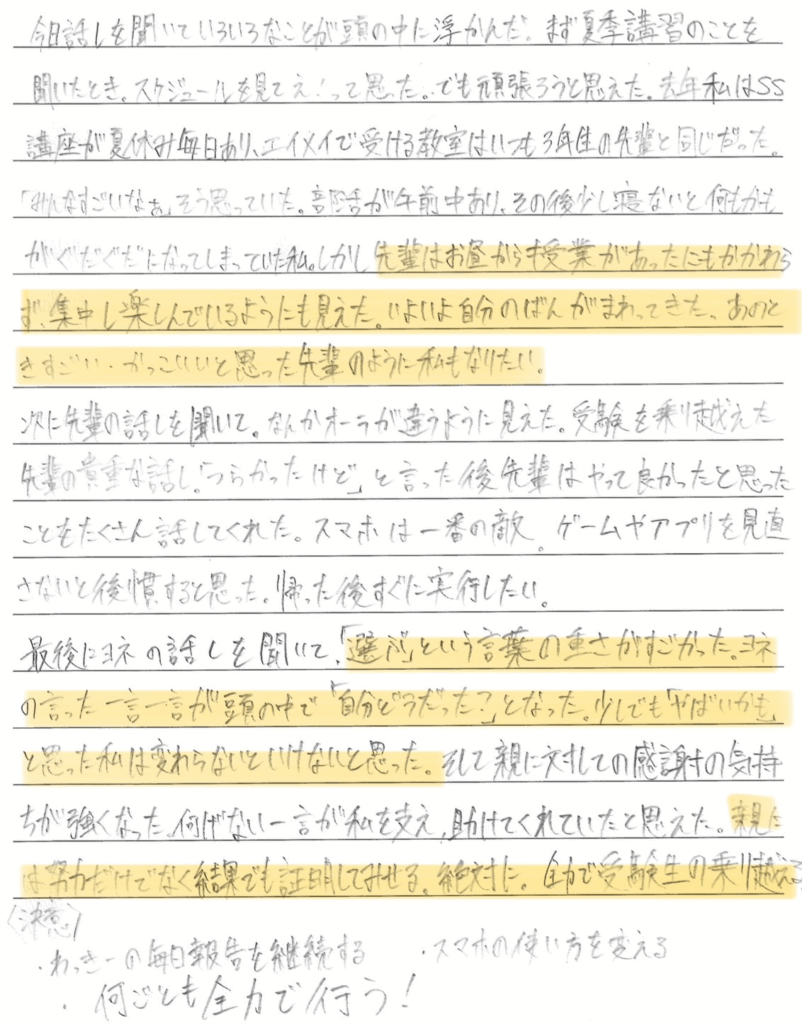 今日話しを聞いていろいろなことが頭の中に浮かんだ。まず夏季講習のことを
聞いたとき。スケジュールを見てえ！って思った。でも頑張ろうと思えた。去年私はSS
講座が夏休み毎日あり、エイメイで受ける教室はいつも3年生の先輩と同じだった。
「みんなすごいなぁ」そう思っていた。部活が午前中あり、その後少し寝ないと何もかも
がぐだぐだになってしまっていた私。しかし先輩はお昼からも授業があったにもかかわら
ず、集中し楽しんでいるようにも見えた。いよいよ自分のばんがまわってきた。あのと
きすごい・かっこいいと思った先輩のように私もなりたい。
次に先輩の話しを聞いて。なんかオーラが違うように見えた。受験を乗り越えた
先輩の貴重な話し。「つらかったけど」と言った後先輩はやって良かったと思った
ことをたくさん話してくれた。スマホは一番の敵。ゲームやアプリを見直
さないと後慣すると思った。帰った後すぐに実行したい。
最後にヨネの話しを聞いて、「選ぶ」という言葉の重さがすごかった。ヨネ
の言った一言一言が頭の中で「自分どうだった？」となった。少しでも「やばいかも」
と思った私は変わらないといけないと思った。そして親に対しての感謝の気持
ちが強くなった。何げない一言が私を支え、助けてくれていたと思えた。親に
は努力だけでなく結果でも証明してみせる。絶対に。全力で受験生の乗り越える
〈決意〉
・わっきーの毎日報告を継続する ・スマホの使い方を変える
・何ごとも全力で行う！